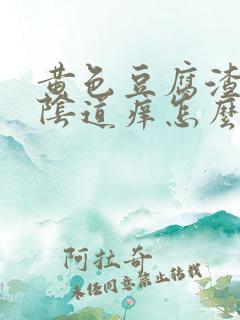 黄色豆腐渣
陰道痒怎麽
阿拉奇
未经同意禁止转载